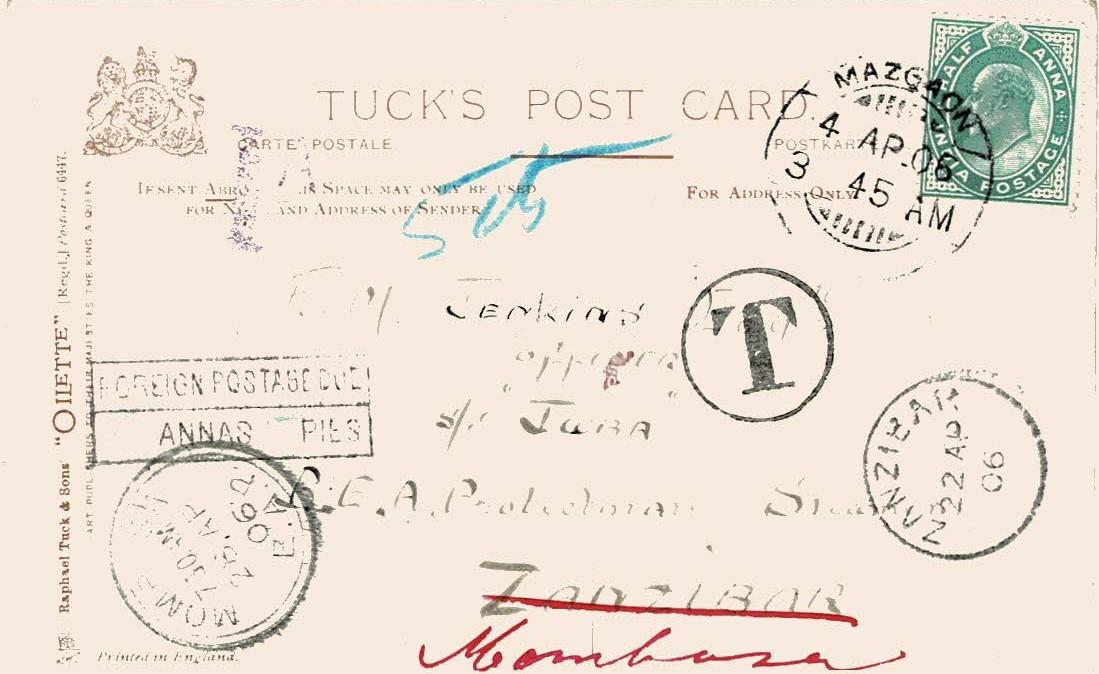 TUCK'S POST CARD.
CARTE POSTALE
POSTKAR
IF SENT ABRO SPACE MAY ONLY BE USED
FOR N AND ADDRESS OF SENDER.
FOR ADDRESS ONLY.
HALF ANNA
INDIA POSTAGE
MAZGAON
4 AP.06
3 45 AM
Jenkins
T
officer
s/s "JUBA
B.E.A. Protectorate
ZANZIBAR
Mombasa
FOREIGN POSTAGE DUE
ANNAS PIES
ZANZIBAR
22 AP
06
MOMB
7 30 M
26 AP
06
B.E.A
Raphael Tuck & Sons' "OILETTE" [Regd.] Postcard 6447.
ART PUBLISHERS TO THEIR MAJESTIES THE KING & QUEEN
Printed in England.